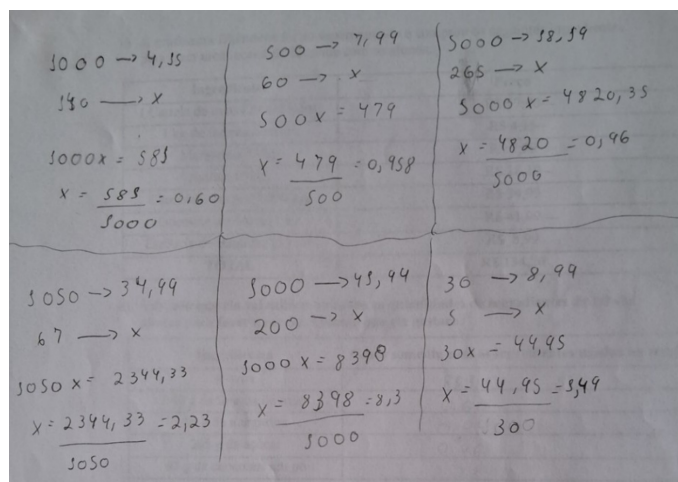 1000 → 4,15
140 → x
1000x = 581
x = 581 = 0,60
1000
500 → 7,99
60 → x
500x = 479
x = 479 = 0,958
500
5000 → 18,19
265 → x
5000 x = 4820,35
x = 4820 = 0,96
5000
1050 → 34,99
67 → x
1050 x = 2344,33
x = 2344,33 = 2,23
1050
1000 → 41,99
200 → x
1000 x = 8398
x = 8398 = 8,3
1000
30 → 8,99
5 → x
30x = 44,95
x = 44,95 = 1,49
300